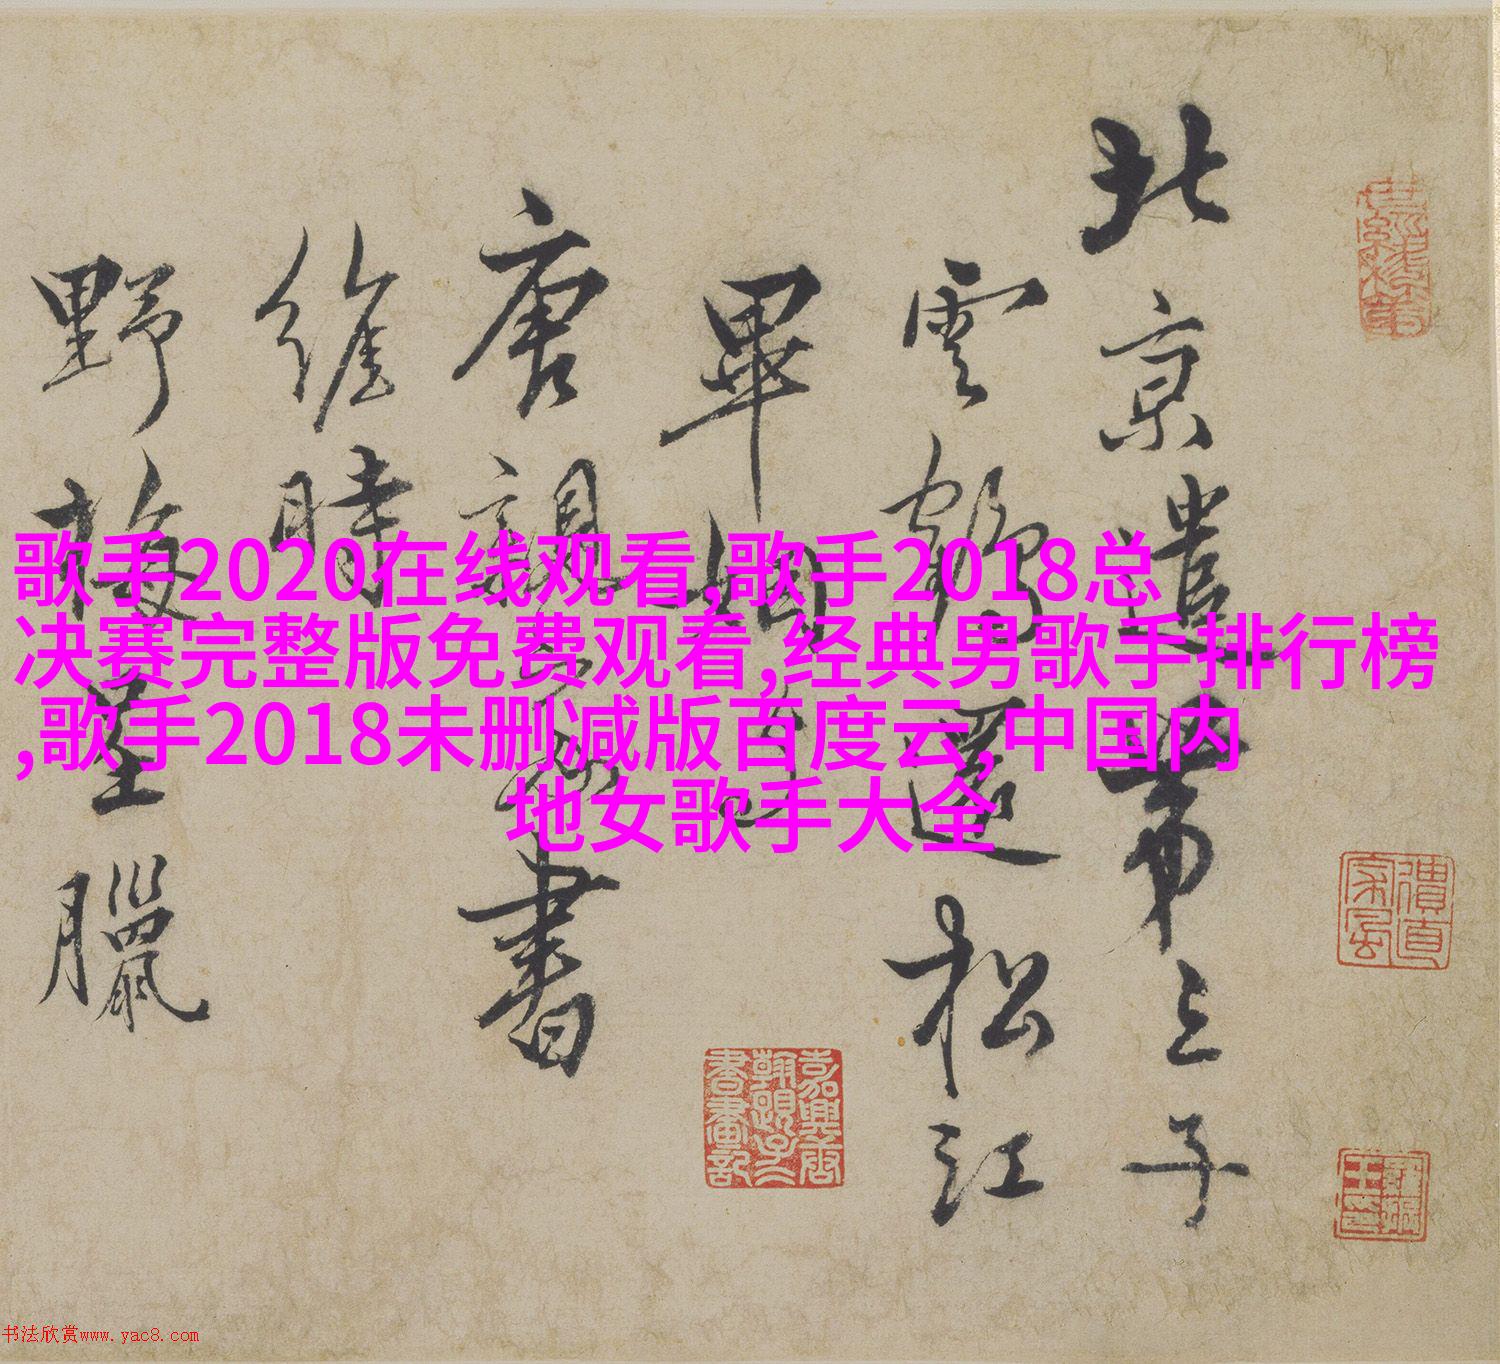 歌手2020在线观看,歌手2018总
决赛完整版免费观看,经典男歌手排行榜
,歌手2018未删减版百度云,中国内
地女歌手大全
北京遣第三子
雲鶴還松江
畢姻
唐親家書
維時
野梅呈臘
书法欣赏www.yac8.com